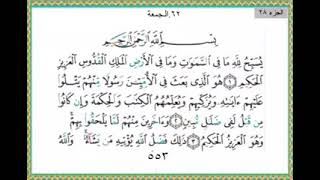 الجزء ٢٨
٦٢.الجمعة
بِسْمِ اللَّهِ الرَّحْمَٰنِ الرَّحِيمِ
يُسَبِّحُ لِلَّهِ مَا فِي السَّمَٰوَٰتِ وَمَا فِي الْأَرْضِ الْمَلِكِ الْقُدُّوسِ الْعَزِيزِ
الْحَكِيمِ ١ هُوَ الَّذِي بَعَثَ فِي الْأُمِّيِّۦنَ رَسُولًا مِّنْهُمْ يَتْلُوا
عَلَيْهِمْ ءَايَٰتِهِۦ وَيُزَكِّيهِمْ وَيُعَلِّمُهُمُ الْكِتَٰبَ وَالْحِكْمَةَ وَإِن كَانُوا
مِن قَبْلُ لَفِي ضَلَٰلٍ مُّبِينٍ ٢ وَءَاخَرِينَ مِنْهُمْ لَمَّا يَلْحَقُوا بِهِمْ
وَهُوَ الْعَزِيزُ الْحَكِيمُ ٣ ذَٰلِكَ فَضْلُ اللَّهِ يُؤْتِيهِ مَن يَشَاءُ وَاللَّهُ
٥٥٣